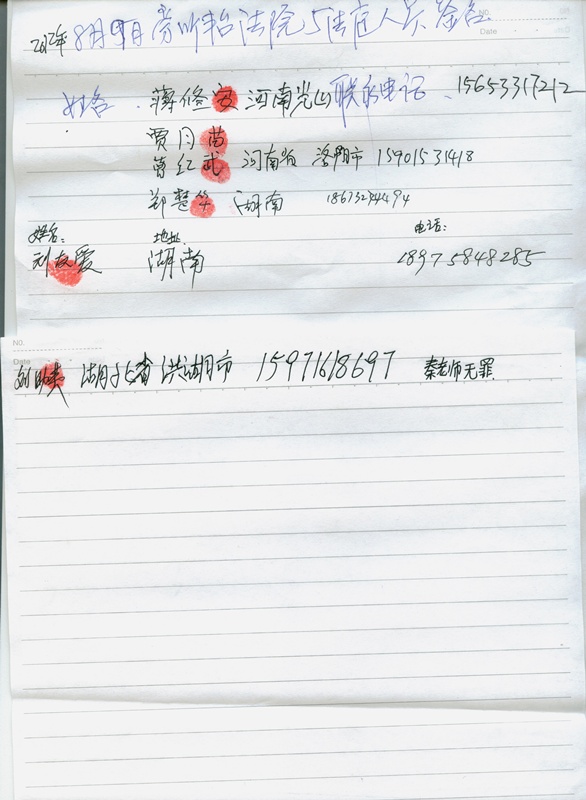 No.
Date
2012年8月9日旁听丰台法院与法庭人员签名
姓名 蒋修安 河南光山 联系电话 15653317212
贾月苗
曾红武 河南省 洛阳市 15901531418
郑楚华 湖南 18673294494
姓名: 地址 电话:
刘友爱 湖南 18975848285
No.
Date
湖北省洪湖市 15971618697 秦老师无罪